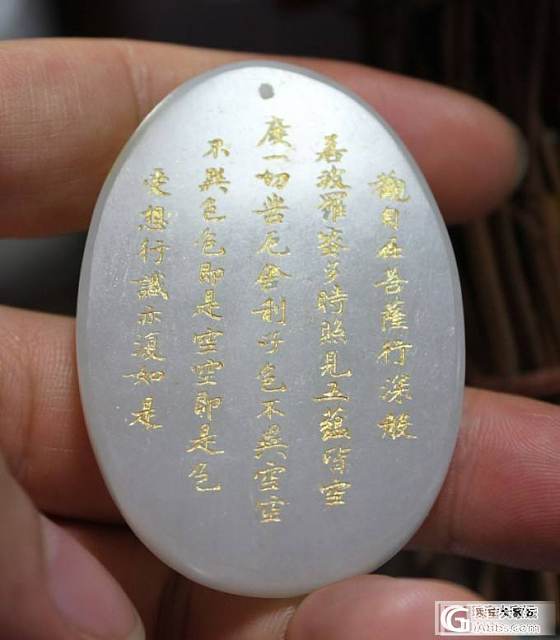 觀自在菩薩行深般
若波羅蜜多時照見五蘊皆空
度一切苦厄舍利子色不異空空
不異色色即是空空即是色
受想行識亦復如是